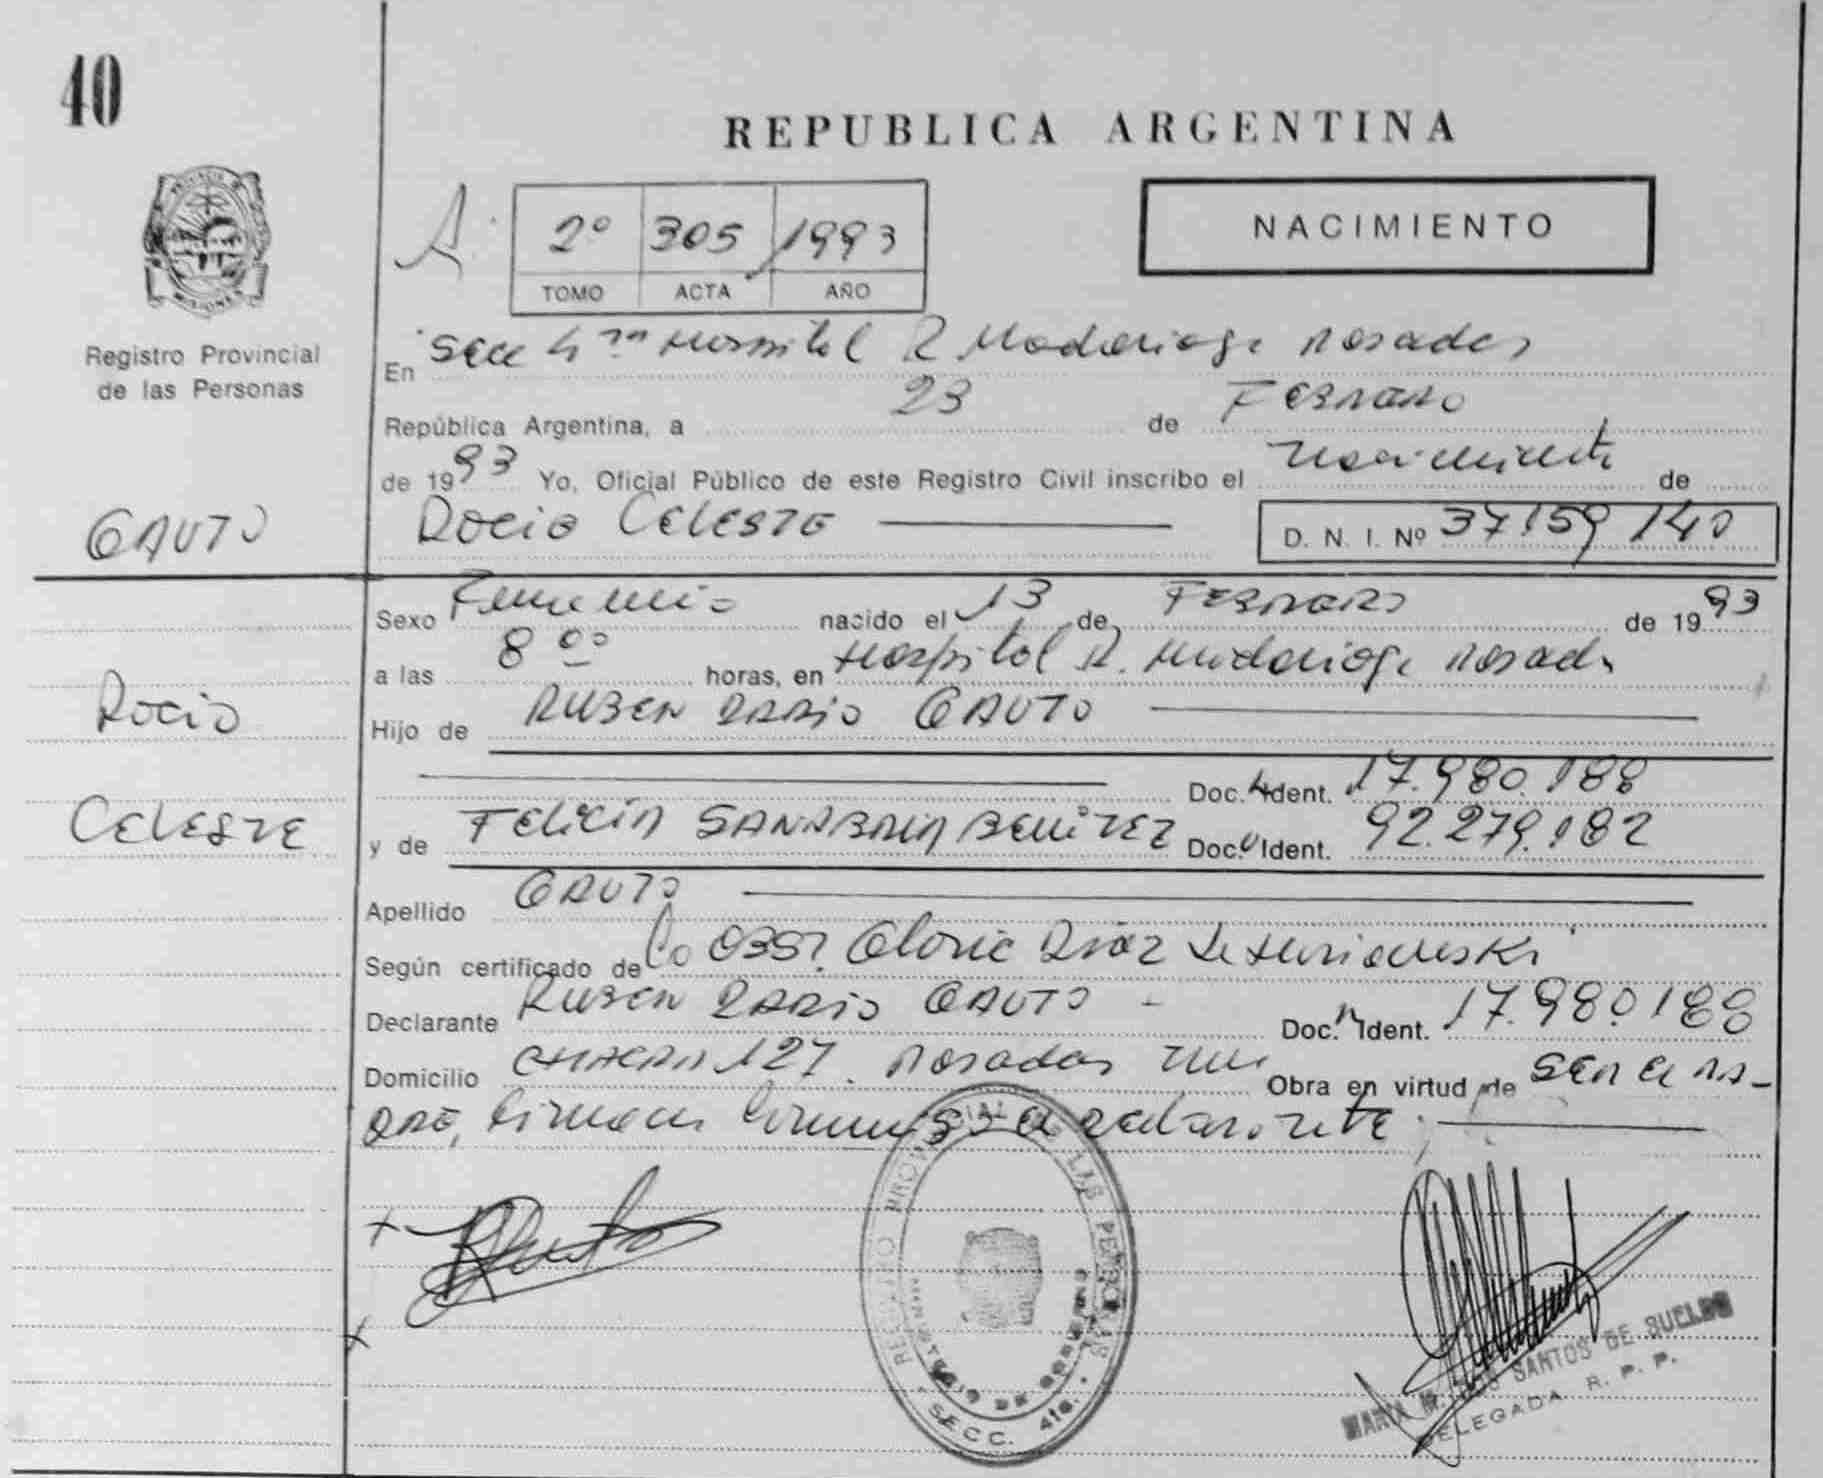 40
REPUBLICA ARGENTINA
PROVINCIA D MISIONES
Registro Provincial
de las Personas
A.
2º 305 1993
TOMO ACTA AÑO
NACIMIENTO
En Secc 4ta Hospital R Madariaga Posadas
República Argentina, a 23 de FEBRERO
de 1993 Yo, Oficial Público de este Registro Civil inscribo el Nacimiento de
GAUTO
ROCIO CELESTE
D. N. I. Nº 37.159.140
Sexo Femenino nacido el 13 de FEBRERO de 1993
a las 8 00 horas, en Hospital R. Madariaga Posadas
Rocio
Hijo de RUBEN DARIO GAUTO
Doc. Ident. 17.980.188
CELESTE
y de FELICIA SANABRIA BENITEZ Doc. Ident. 92.279.182
Apellido GAUTO
Según certificado de Co 0357. Gloria Diaz de
Declarante RUBEN DARIO GAUTO - Doc. Ident. 17.980.188
Domicilio CHACRA 127. Posadas Obra en virtud de SER EL PA-
DRE, firman conmigo el declarante.
REGISTRO PROVINCIAL DE LAS PERSONAS
MINISTERIO DE GOBIERNO
SECC. 4ta.
MARIA M. DOS SANTOS DE SUELDO
DELEGADA R. P. P.